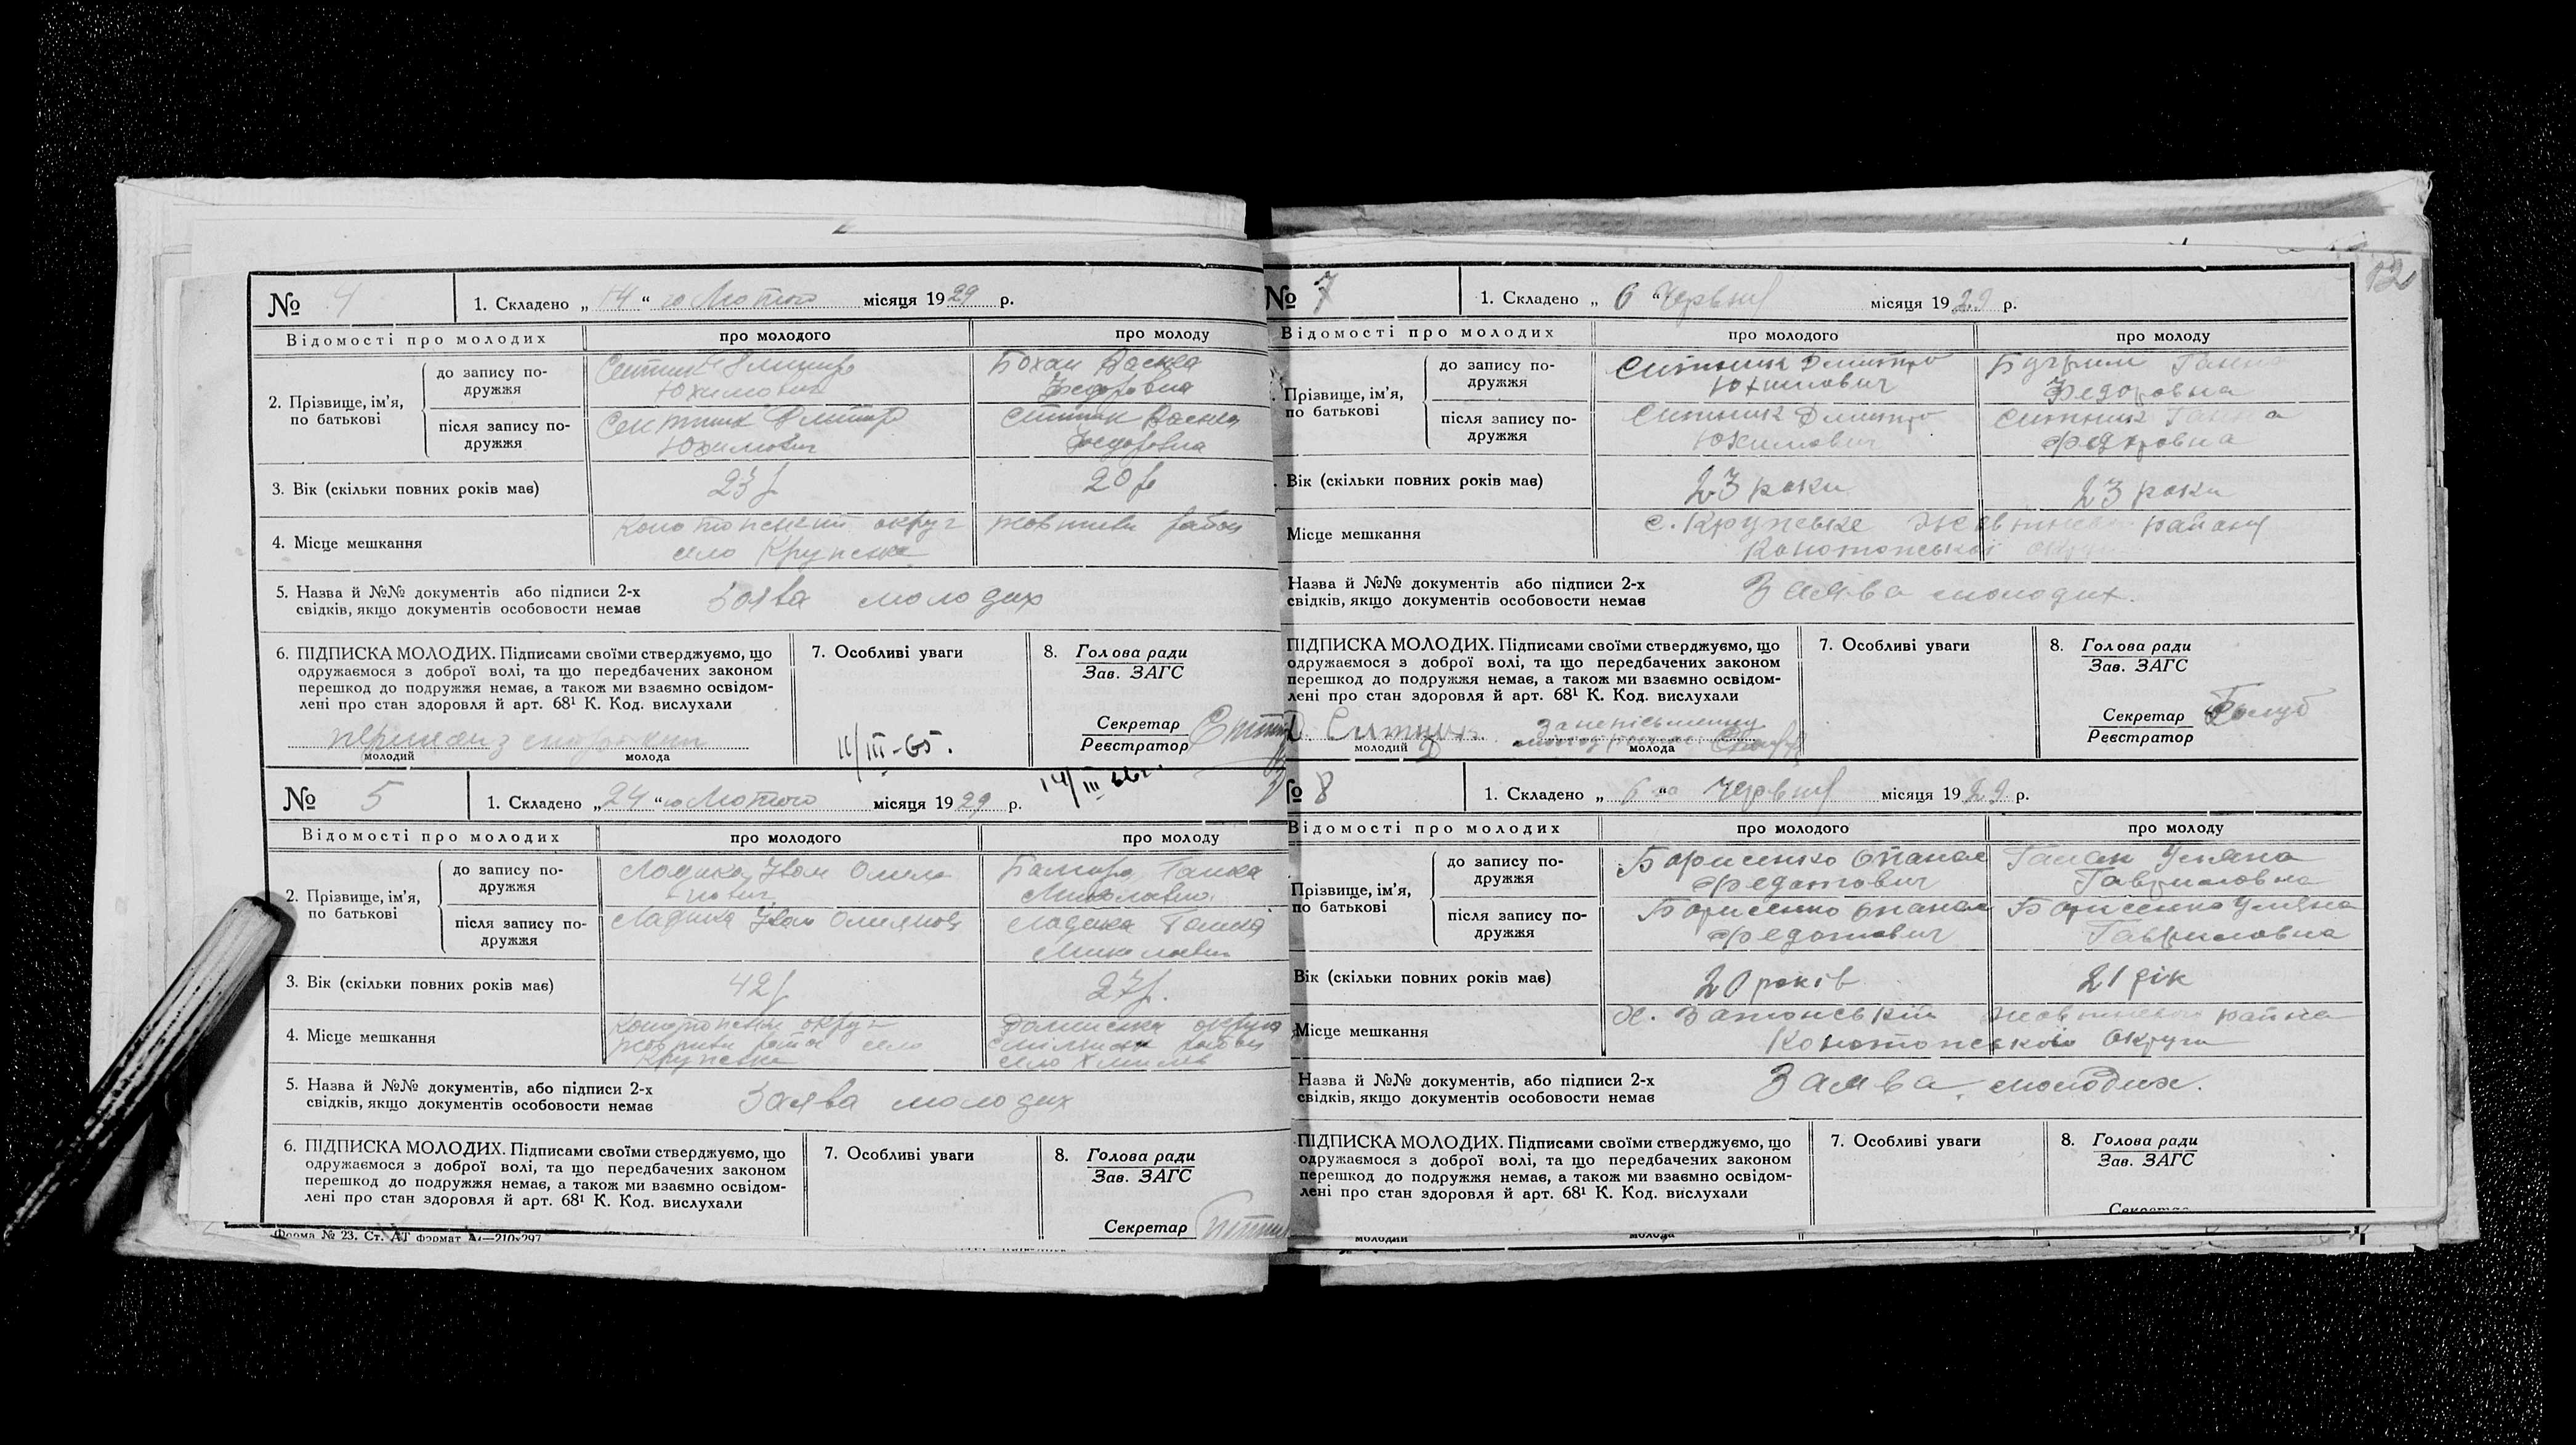 № 4
1. Складено „ 14 “ го Лютого місяця 1929 р.
Відомості про молодих
про молодого
про молоду
2. Прізвище, ім’я, по батькові
до запису по-
дружжя
Дмитро
Юхимович
Бохан Васка
Федоровна
після запису по-
дружжя
Дмитро
Юхимович
Ситник Васка
Федоровна
3. Вік (скільки повних років має)
23 р
20 р
4. Місце мешкання
Конотопский округ
село Крупське
район
5. Назва й №№ документів або підписи 2-х
свідків, якщо документів особовости немає
Заява молодих
6. ПІДПИСКА МОЛОДИХ. Підписами своїми стверджуємо, що
одружаємося з доброї волі, та що передбачених законом
перешкод до подружжя немає, а також ми взаємно освідом-
лені про стан здоровля й арт. 68¹ К. Код. вислухали
молодий
молода
7. Особливі уваги
11/III-65.
8. Голова ради
Зав. ЗАГС
Секретар
Реєстратор
14/III 66г.
№ 5
1. Складено „24“го Лютого місяця 1929 р.
Відомості про молодих
про молодого
про молоду
2. Прізвище, ім’я,
по батькові
до запису по-
дружжя
Ладика Іван
Ганна
після запису по-
дружжя
Ладика Іван
Ладика Ганна
3. Вік (скільки повних років має)
42 р
27 р.
4. Місце мешкання
округ
село
Крупське
округа
район
село Хмилів
5. Назва й №№ документів, або підписи 2-х
свідків, якщо документів особовости немає
Заява молодих
6. ПІДПИСКА МОЛОДИХ. Підписами своїми стверджуємо, що
одружаємося з доброї волі, та що передбачених законом
перешкод до подружжя немає, а також ми взаємно освідом-
лені про стан здоровля й арт. 68¹ К. Код. вислухали
7. Особливі уваги
8. Голова ради
Зав. ЗАГС
Секретар
Форма № 23. Ст. АТ формат А4—210х297
120
№ 7
1. Складено „ 6 “ Червня місяця 1929 р.
Відомості про молодих
про молодого
про молоду
Прізвище, ім’я,
по батькові
до запису по-
дружжя
Ситник Дмитро
Юхимович
Ганна
Федоровна
після запису по-
дружжя
Ситник Дмитро
Юхимович
Ситник Ганна
Федоровна
Вік (скільки повних років має)
23 роки
23 роки
Місце мешкання
с. Крупське Жовтневого району
Конотопської округи
Назва й №№ документів або підписи 2-х
свідків, якщо документів особовости немає
Заява молодих.
ПІДПИСКА МОЛОДИХ. Підписами своїми стверджуємо, що
одружаємося з доброї волі, та що передбачених законом
перешкод до подружжя немає, а також ми взаємно освідом-
лені про стан здоровля й арт. 68¹ К. Код. вислухали
Д. Ситник
За неписьменну
молодий
молода
7. Особливі уваги
8. Голова ради
Зав. ЗАГС
Секретар
Реєстратор
Голуб
№ 8
1. Складено „ 6 “го Червня місяця 1929 р.
Відомості про молодих
про молодого
про молоду
Прізвище, ім’я,
по батькові
до запису по-
дружжя
Борисенко Опанас
Федотович
Уляна
Гавриловна
після запису по-
дружжя
Борисенко Опанас
Федотович
Борисенко Уляна
Гавриловна
Вік (скільки повних років має)
20 років
21 рік
Місце мешкання
Х. Затонський Жовтневого района
Конотопської Округи
Назва й №№ документів, або підписи 2-х
свідків, якщо документів особовости немає
Заява молодих.
ПІДПИСКА МОЛОДИХ. Підписами своїми стверджуємо, що
одружаємося з доброї волі, та що передбачених законом
перешкод до подружжя немає, а також ми взаємно освідом-
лені про стан здоровля й арт. 68¹ К. Код. вислухали
7. Особливі уваги
8. Голова ради
Зав. ЗАГС
Секретар
молодий
молода